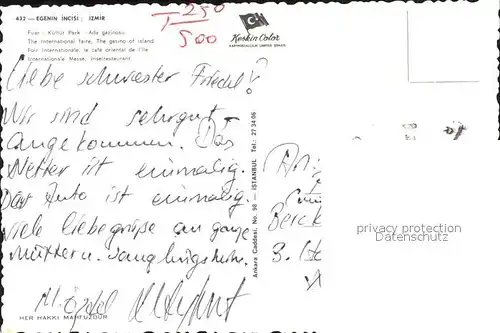 432 — EGENIN INCISI : IZMIR
Fuar - Kültür Park - Ada gazinosu
The International faire, The gasino of island
Fuir Internationale, le cafe oriental de l'île
Internationale Messe, Inselrestaurant
250
500
Keskin Color
Liebe Schwester Friedel!
Wir sind sehr gut
angekommen. Das
Wetter ist einmalig.
Das Auto ist einmalig.
viele liebe grüße an ganze
Mütter u. Säuglingsheim.
HER HAKKI MAHFUZDUR
Ankara Caddesi, No. 98 — ISTANBUL Tel.: 27 34 05
An
Berck
3.
privacy protection
Datenschutz